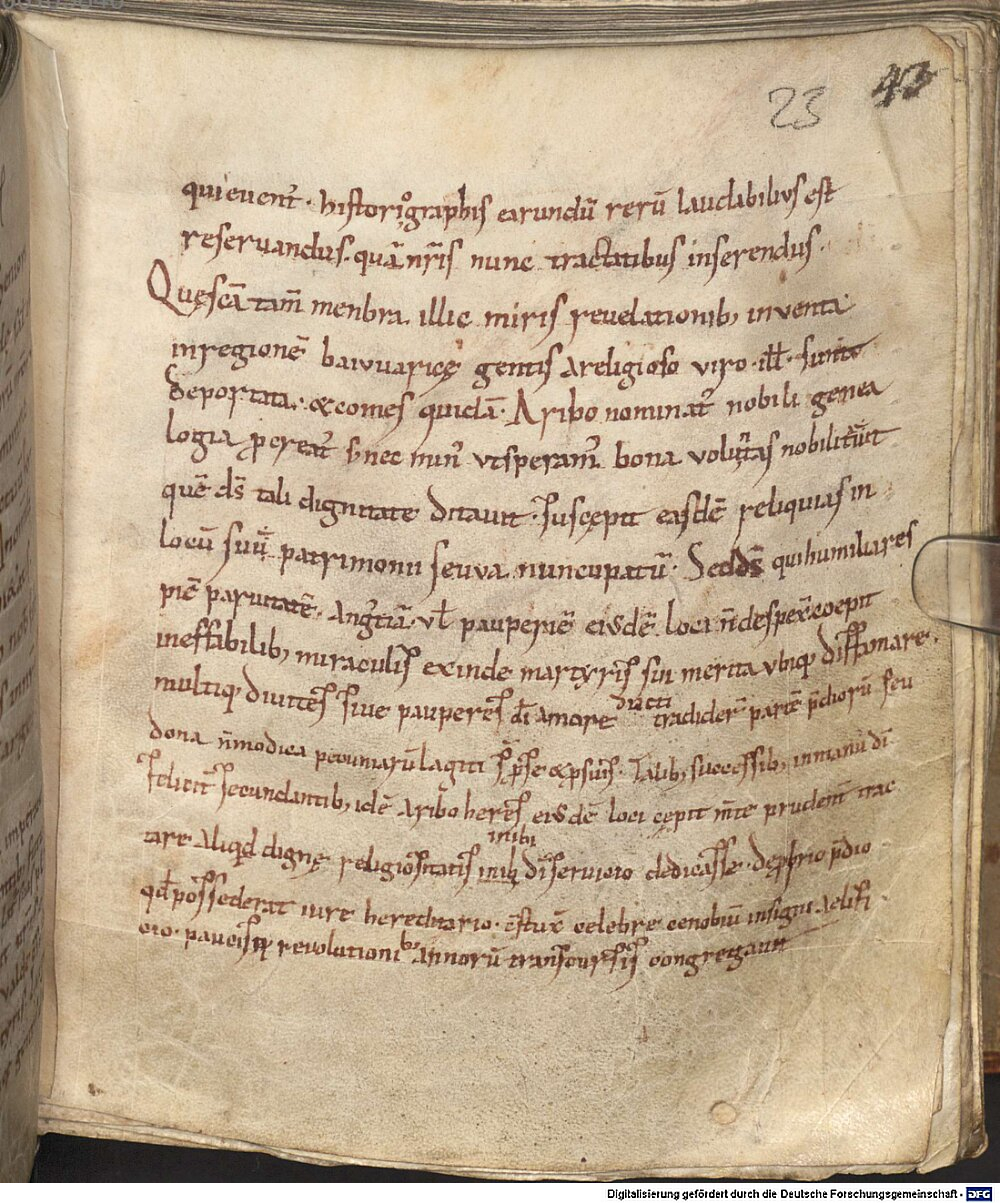 23 43
qui euenert̄ · historiographis earundū rerū laudabilius est
reseruandus · quā nr̄is nunc tractatibus inserendus ·
Quęscā tam̄ menbra illic miris reuelationib; inuenta
in regionē baiuuaricę gentis a religioso uiro · ill̄ · sunt
deportata · & comes quidā · Aribo nominat̄ nobili genea
logia ꝓcreat̄ s; nec min̄ ut speram̄ bona uoluntas nobilitauit
quē ds̄ tali dignitate ditauit · suscępit easdē reliquias in
locū suū patrimonii seuua nuncupatū · Sed ds̄ qui humiliū res
picit paruitatē · angustiā · ul̄ pauperiē eiusdē loci n̄ despex̄ coepit
ineffabilib; miraculis exinde martyris sui merita ubiq; diffamare ·
multiq; diuites siue pauperes dī amore ducti tradider̄ partē p̄diorū seu
dona n̄ modica pecuniarū laqiti s̄ p̄ se & p suis · Talib; successib; in manu dī
feliciт̄ secundantib; idē Aribo heres eiusdē loci cępit m̄te prudent̄ trac
tare aliqd̄ dignę religiositatis inibi dī seruicio dedicasse · de ꝓprio p̄dio
qd̄ possederat iure hereditario · c̄strux̄ celebre cenobiū insigni aedifi
cio · paucisq; reuolutionibꝰ annorū transcursis congregauit
Digitalisierung gefördert durch die Deutsche Forschungsgemeinschaft - DFG